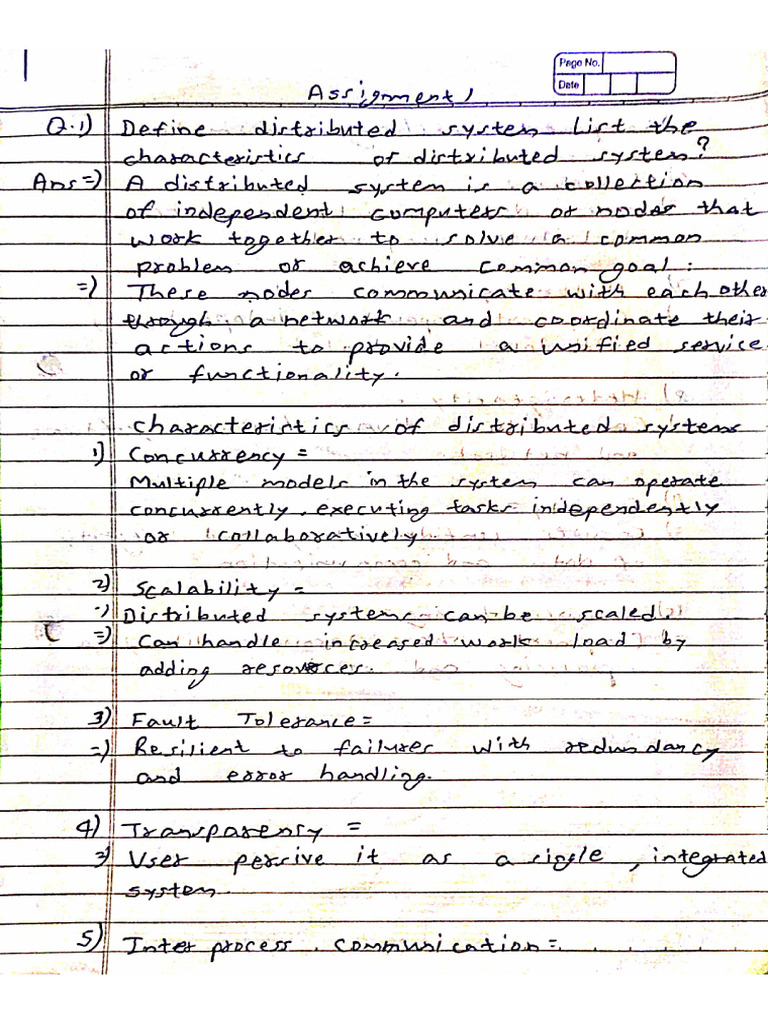 Page No.
Date
Assignment 1
Q.1) Define distributed system List the
characteristics of distributed system?
Ans=) A distributed system is a collection
of independent computers or nodes that
work together to solve a common
problem or achieve common goal:
=) These nodes communicate with each other
through a network and coordinate their
actions to provide a unified service
or functionality.
characteristics of distributed systems
1) Concurrency =
Multiple models in the system can operate
concurrently, executing tasks independently
or collaboratively
2) Scalability =
=) Distributed systems can be scaled.
=) Can handle increased work load by
adding resources.
3) Fault Tolerance =
=) Resilient to failures with redundancy
and error handling.
4) Transparency =
=) User persive it as a sigle, integrated
system.
5) Inter process communication =